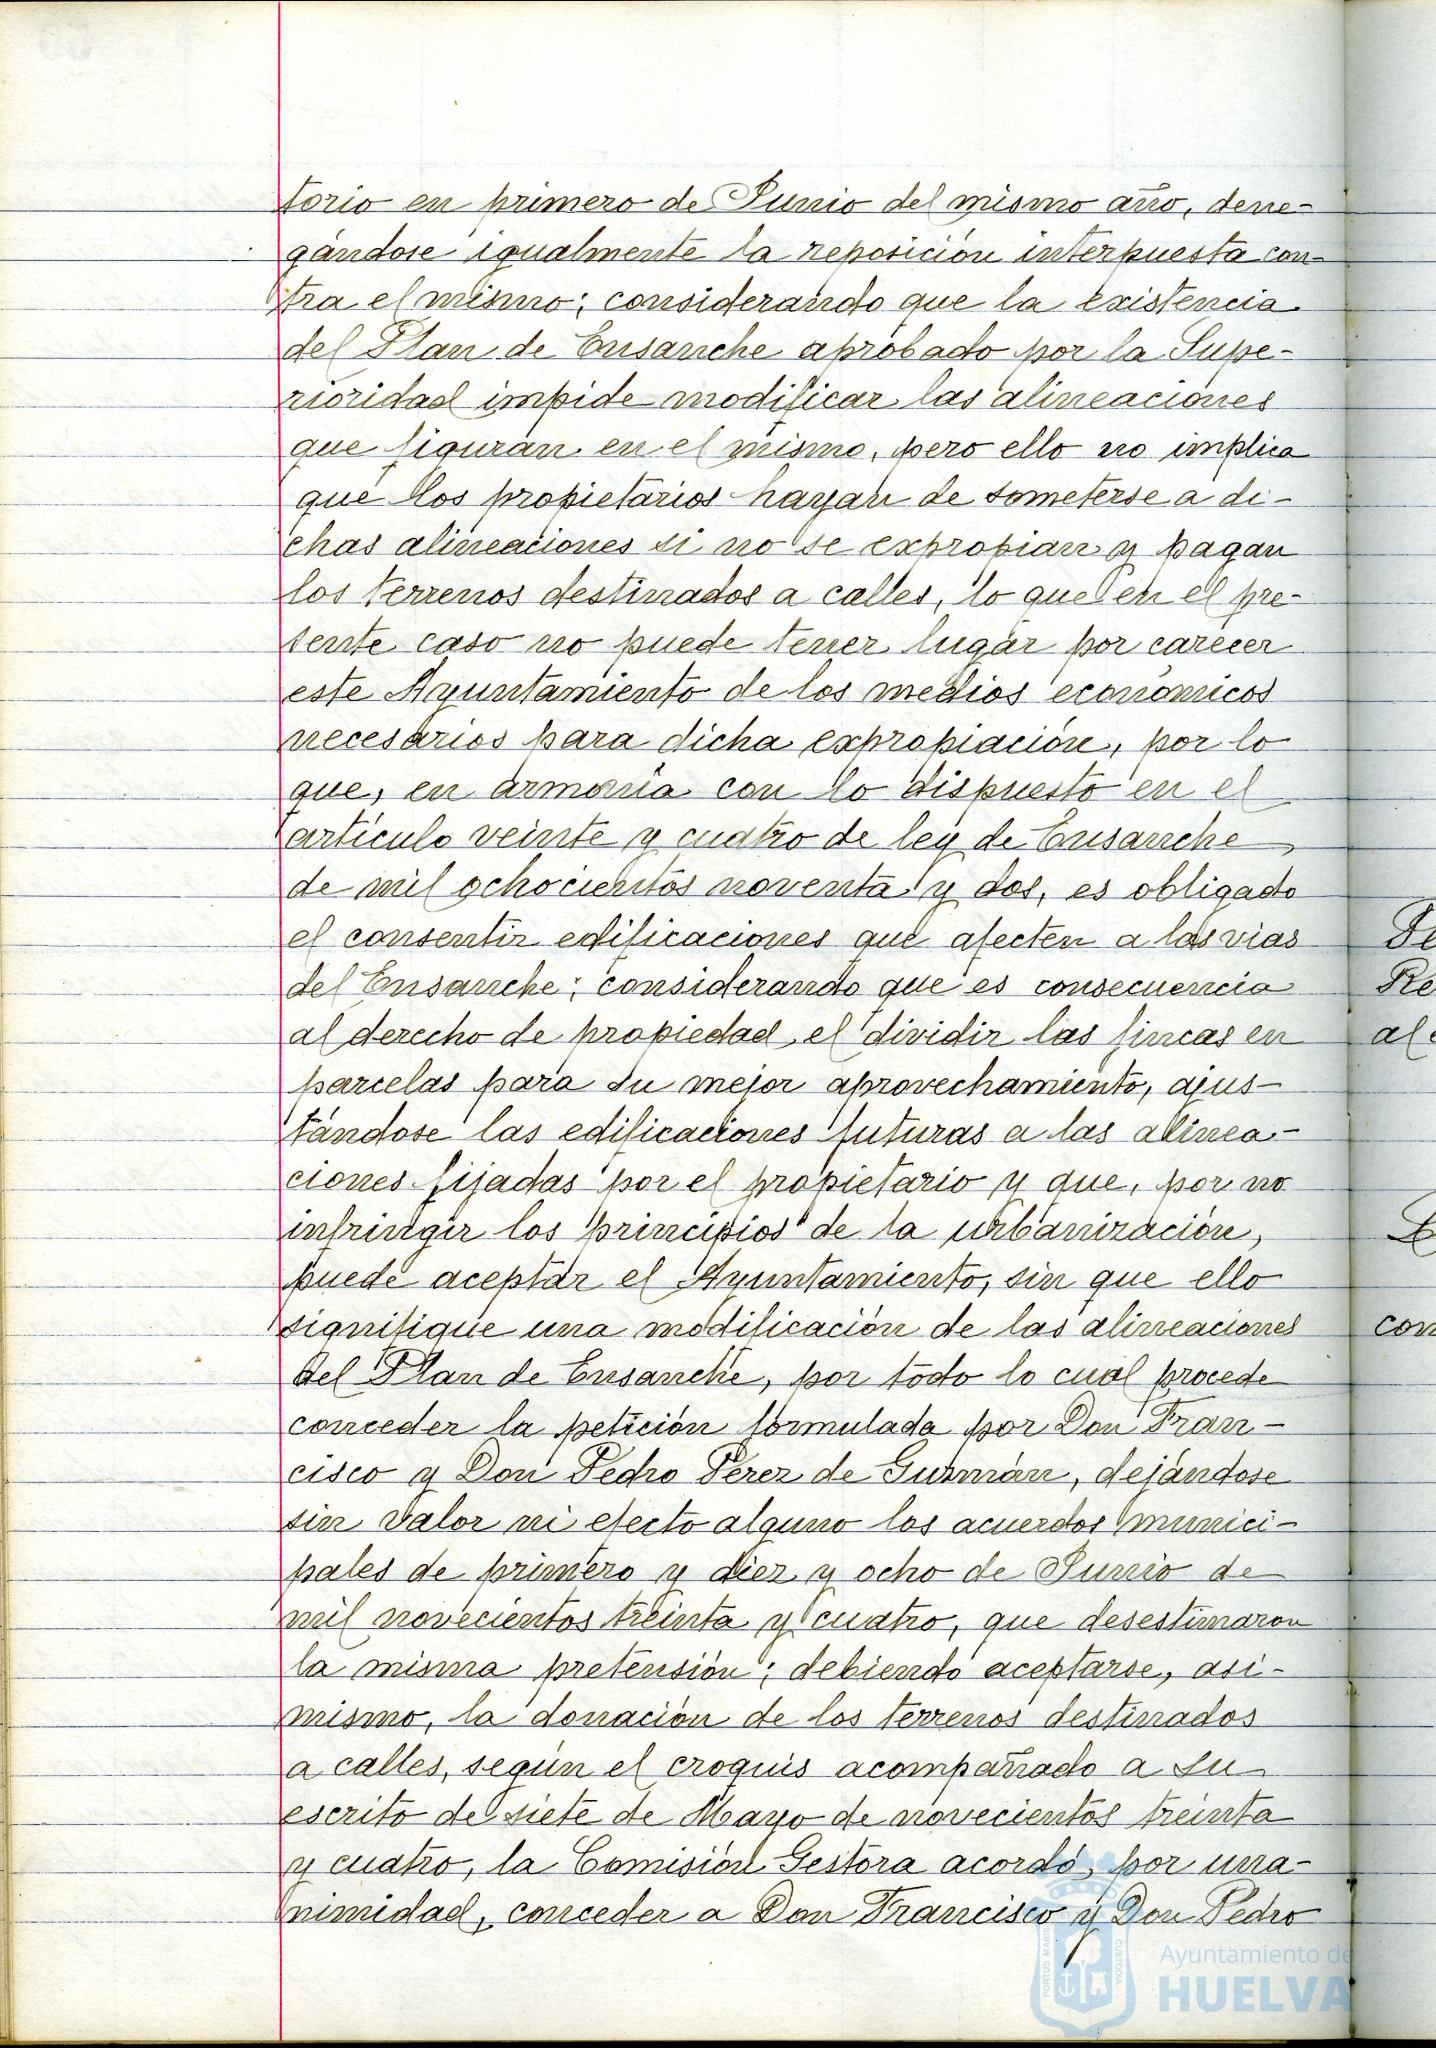 torio en primero de Junio del mismo año, dene-
gándose igualmente la reposición interpuesta con-
tra el mismo; considerando que la existencia
del Plan de Ensanche aprobado por la Supe-
rioridad impide modificar las alineaciones
que figuran en el mismo, pero ello no implica
que los propietarios hayan de someterse a di-
chas alineaciones si no se expropian y pagan
los terrenos destinados a calles, lo que en el pre-
sente caso no puede tener lugar por carecer
este Ayuntamiento de los medios económicos
necesarios para dicha expropiación, por lo
que, en armonía con lo dispuesto en el
artículo veinte y cuatro de ley de Ensanche
de mil ochocientos noventa y dos, es obligado
el consentir edificaciones que afecten a las vias
del Ensanche; considerando que es consecuencia
al derecho de propiedad el dividir las fincas en
parcelas para su mejor aprovechamiento, ajus-
tándose las edificaciones futuras a las alinea-
ciones fijadas por el propietario y que, por no
infringir los principios de la urbanización,
puede aceptar el Ayuntamiento, sin que ello
signifique una modificación de las alineaciones
del Plan de Ensanche, por todo lo cual procede
conceder la petición formulada por Don Fran-
cisco y Don Pedro Pérez de Guzmán, dejándose
sin valor ni efecto alguno los acuerdos munici-
pales de primero y diez y ocho de Junio de
mil novecientos treinta y cuatro, que desestimaron
la misma pretensión; debiendo aceptarse, asi-
mismo, la donación de los terrenos destinados
a calles, según el croquis acompañado a su
escrito de siete de Mayo de novecientos treinta
y cuatro, la Comisión Gestora acordó, por una-
nimidad, conceder a Don Francisco y Don Pedro
Re
al
con
Ayuntamiento de
HUELVA